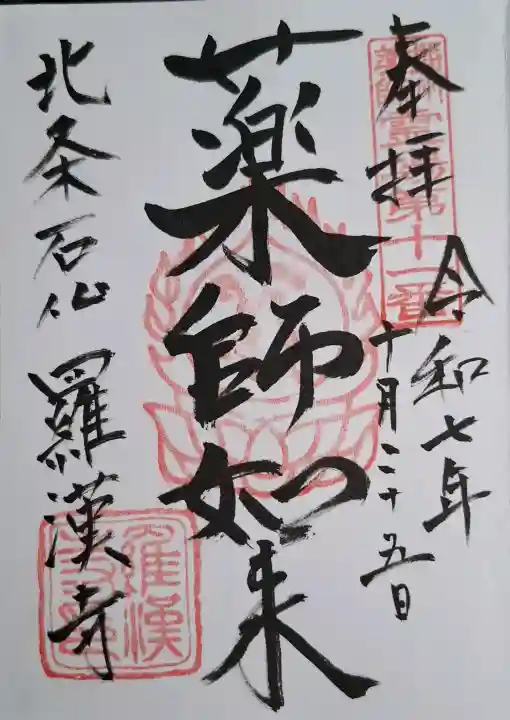 奉拝
令和七年
十月二十五日
薬師如来
北条石仏
羅漢寺
第十一番
羅漢